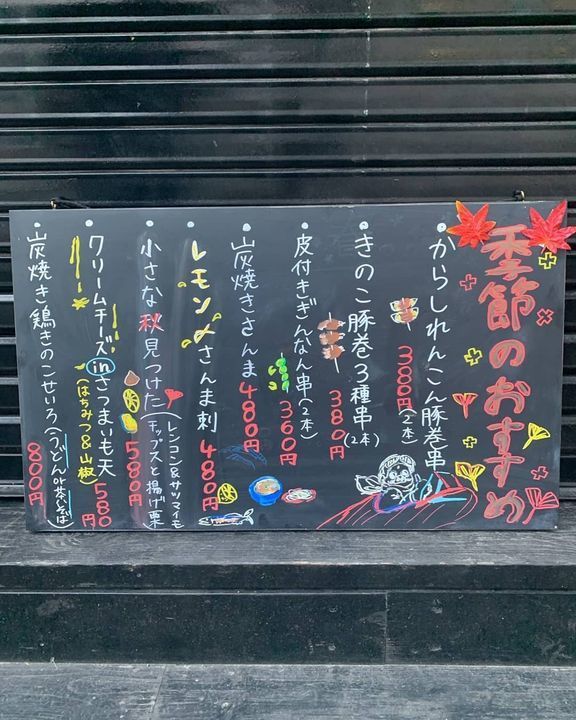 季節のおすすめ
・からしれんこん豚巻串
380円(2本)
・きのこ豚巻3種串(2本)
380円
・皮付きぎんなん串(2本)
360円
・炭焼きさんま480円
・レモン〆さんま刺
480円
・小さな秋見つけた(レンコン&サツマイモチップスと揚げ栗
580円
・クリームチーズinさつまいも天
(はちみつ&山椒)
580円
・炭焼き鶏きのこせいろ(うどんor茶そば)
800円